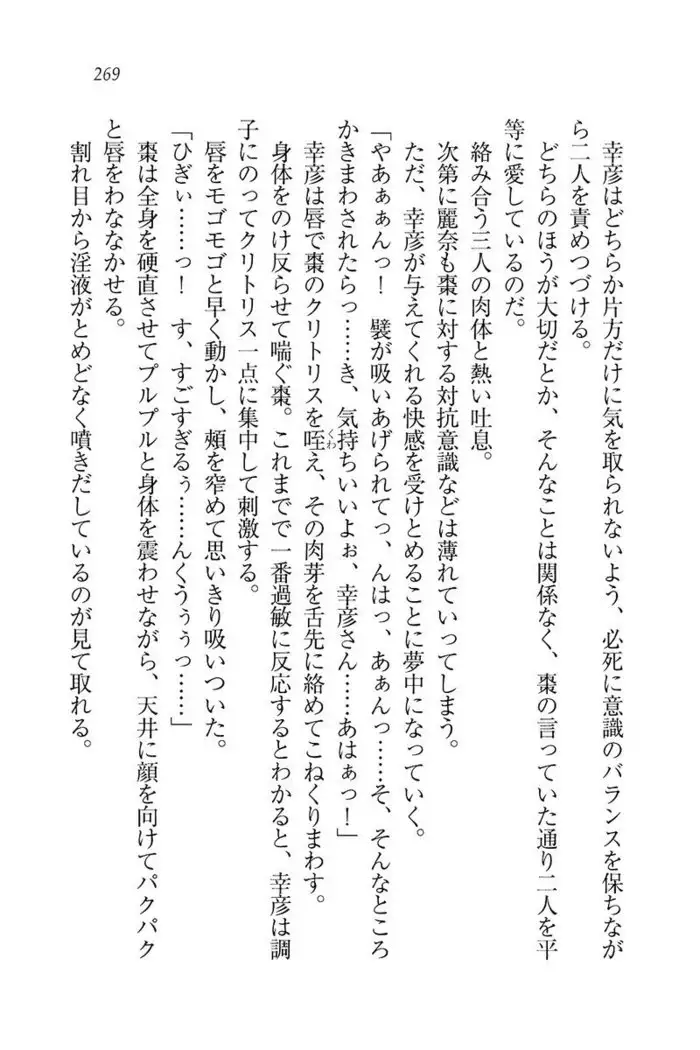 269
幸彦はどちらか片方だけに気を取られないよう、必死に意識のバランスを保ちなが
ら二人を責めつづける。
どちらのほうが大切だとか、そんなことは関係なく、棗の言っていた通り二人を平
等に愛しているのだ。
絡み合う三人の肉体と熱い吐息。
次第に麗奈も棗に対する対抗意識などは薄れていってしまう。
ただ、幸彦が与えてくれる快感を受けとめることに夢中になっていく。
「やあぁぁんっ！　襞が吸いあげられてっ、んはっ、あぁんっ……そ、そんなところ
かきまわされたらっ……き、気持ちいいよぉ、幸彦さん……あはぁっ！」
幸彦は唇で棗のクリトリスを咥え、その肉芽を舌先に絡めてこねくりまわす。
くわ
身体をのけ反らせて喘ぐ棗。これまでで一番過敏に反応するとわかると、幸彦は調
子にのってクリトリス一点に集中して刺激する。
唇をモゴモゴと早く動かし、頰を窄めて思いきり吸いついた。
「ひぎぃ……っ！　す、すごすぎるぅ……んくうぅぅっ……」
棗は全身を硬直させてプルプルと身体を震わせながら、天井に顔を向けてパクパク
と唇をわななかせる。
割れ目から淫液がとめどなく噴きだしているのが見て取れる。